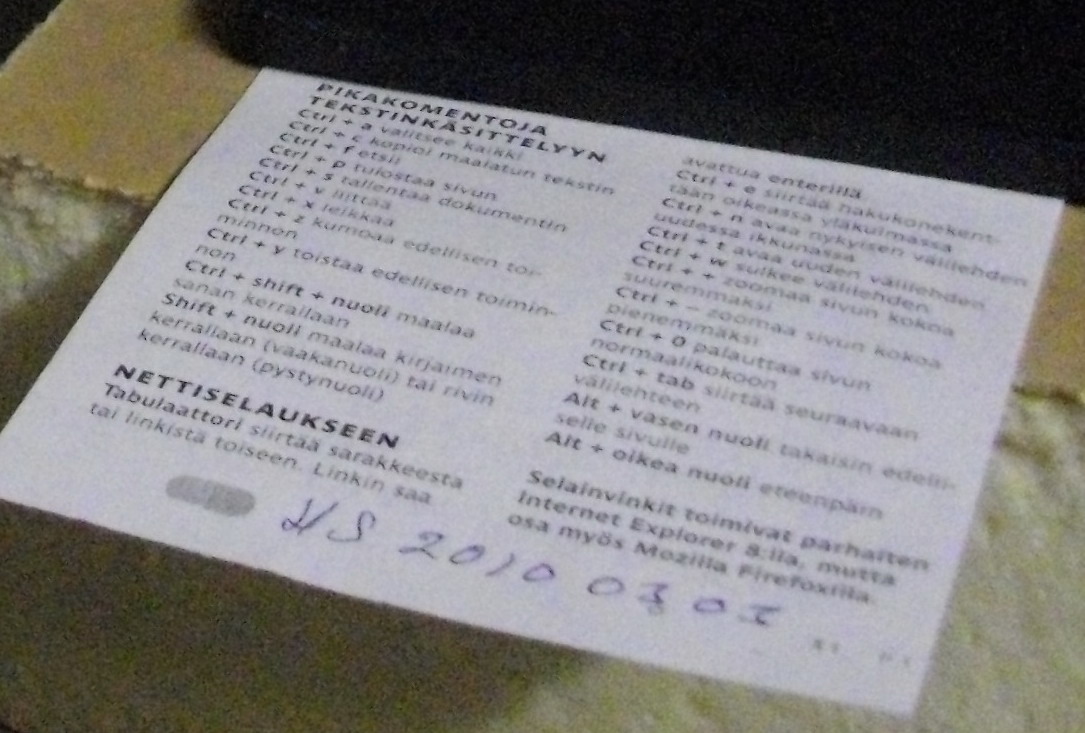 PIKAKOMENTOJA
TEKSTINKÄSITTELYYN
Ctrl + a valitsee kaikki
Ctrl + c kopioi maalatun tekstin
Ctrl + f etsii
Ctrl + p tulostaa sivun
Ctrl + s tallentaa dokumentin
Ctrl + v liittää
Ctrl + x leikkaa
Ctrl + z kumoaa edellisen toi-
minnon
Ctrl + y toistaa edellisen toimin-
non
Ctrl + shift + nuoli maalaa
sanan kerrallaan
Shift + nuoli maalaa kirjaimen
kerrallaan (vaakanuoli) tai rivin
kerrallaan (pystynuoli)
NETTISELAUKSEEN
Tabulaattori siirtää sarakkeesta
tai linkistä toiseen. Linkin saa
avattua enterillä
Ctrl + e siirtää hakukonekent-
tään oikeassa yläkulmassa
Ctrl + n avaa nykyisen välilehden
uudessa ikkunassa
Ctrl + t avaa uuden välilehden
Ctrl + w sulkee välilehden
Ctrl + + zoomaa sivun kokoa
suuremmaksi
Ctrl + – zoomaa sivun kokoa
pienemmäksi
Ctrl + 0 palauttaa sivun
normaalikokoon
Ctrl + tab siirtää seuraavaan
välilehteen
Alt + vasen nuoli takaisin edelli-
selle sivulle
Alt + oikea nuoli eteenpäin
Selainvinkit toimivat parhaiten
Internet Explorer 8:lla, mutta
osa myös Mozilla Firefoxilla.
HS 2010